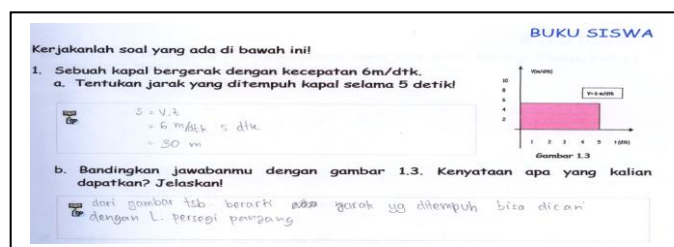 BUKU SISWA
Kerjakanlah soal yang ada di bawah ini!
1. Sebuah kapal bergerak dengan kecepatan 6m/dtk.
a. Tentukan jarak yang ditempuh kapal selama 5 detik!
S = V.t
= 6 m/dtk 5 dtk
= 30 m
V(m/dtk)
10
8
6
4
2
V=6 m/dtk
1 2 3 4 5 t (dtk)
Gambar 1.3
b. Bandingkan jawabanmu dengan gambar 1.3. Kenyataan apa yang kalian
dapatkan? Jelaskan!
dari gambar tsb berarti jarak yg ditempuh bisa dicari
dengan L. persegi panjang